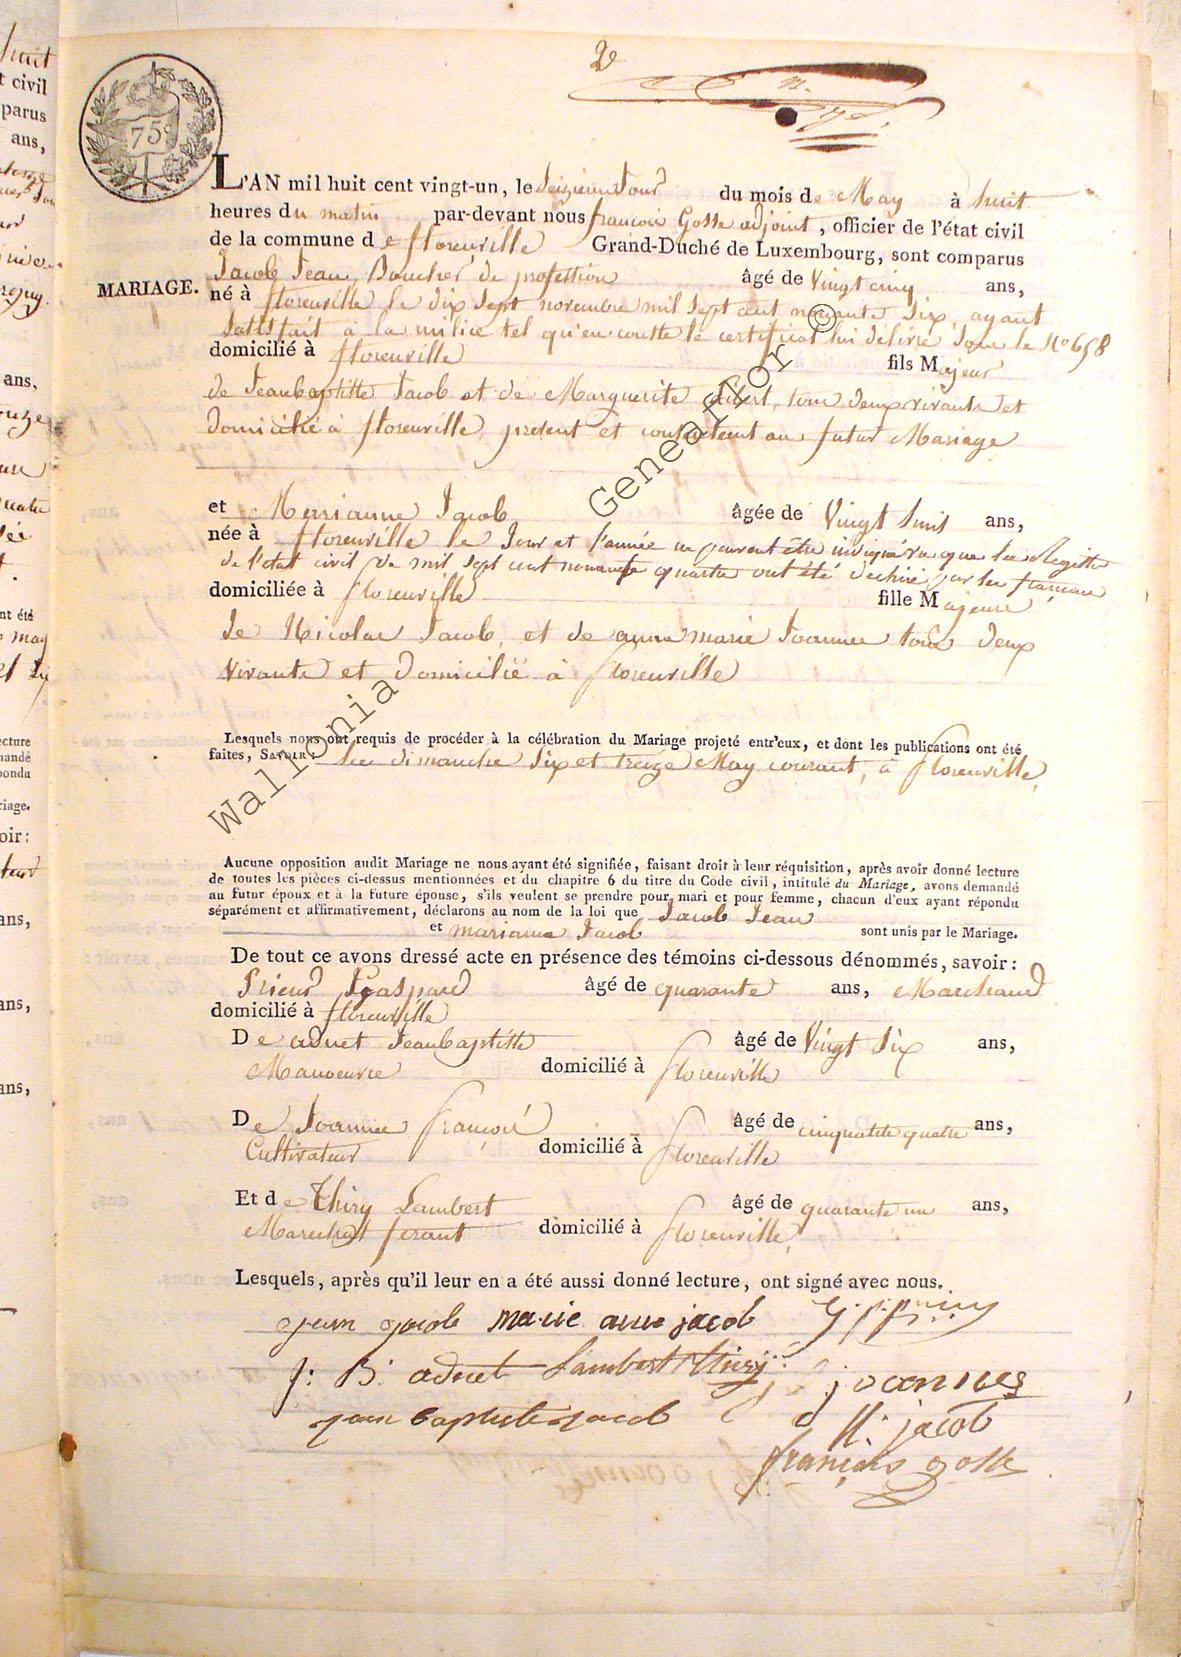 2e
75c
L'AN mil huit cent vingt-un, le Seizieme Jour du mois de May à huit
heures du matin par-devant nous francois Gosse adjoint, officier de l'état civil
de la commune de florenville Grand-Duché de Luxembourg, sont comparus
MARIAGE.
Jacob Jean Boucher de profession âgé de Vingt cinq ans,
né à florenville le dix sept novembre mil sept cent nonante six, ayant
satisfait à la milice tel qu'en conste le certificat lui délivré sous le No 658
domicilié à florenville fils Majeur
de Jeanbaptitte Jacob et de Marguerite tous deux vivants et
Domicilié à florenville, présent et consentant au futur Mariage
et Merrianne Jacob âgée de Vingt Sept ans,
née à florenville le Jour et l'année ne pouvant être indiqué vu que les Registre
de l'état civil de mil sept cent nonante quatre ont été dechiré par les françois
domiciliée à florenville fille Majeure
de Nicolas Jacob, et de anne marie Joannes tous deux
vivants et Domicilié à florenville
Lesquels nous ont requis de procéder à la célébration du Mariage projeté entr'eux, et dont les publications ont été
faites, SAVOIR: les dimanche Six et treize May courant, à florenville,
Aucune opposition audit Mariage ne nous ayant été signifiée, faisant droit à leur réquisition, après avoir donné lecture
de toutes les pièces ci-dessus mentionnées et du chapitre 6 du titre du Code civil, intitulé du Mariage, avons demandé
au futur époux et à la future épouse, s'ils veulent se prendre pour mari et pour femme, chacun d'eux ayant répondu
séparément et affirmativement, déclarons au nom de la loi que Jacob Jean
et marianne Jacob sont unis par le Mariage.
De tout ce avons dressé acte en présence des témoins ci-dessous dénommés, savoir:
Prieur Gaspard âgé de quarante ans, Marchand
domicilié à florenville
De adnet Jeanbaptitte âgé de Vingt Six ans,
Manoeuvre domicilié à florenville
De Joannes françois âgé de cinquante quatre ans,
Cultivateur domicilié à florenville
Et de Thiry Lambert âgé de quarante un ans,
Marechal ferant domicilié à florenville,
Lesquels, après qu'il leur en a été aussi donné lecture, ont signé avec nous.
jean jacob marie anne jacob
J: B: adnet Lambert thiry joannes
jean baptiste jacob N: jacob
françois gosse
Wallonia Geneaflor ©